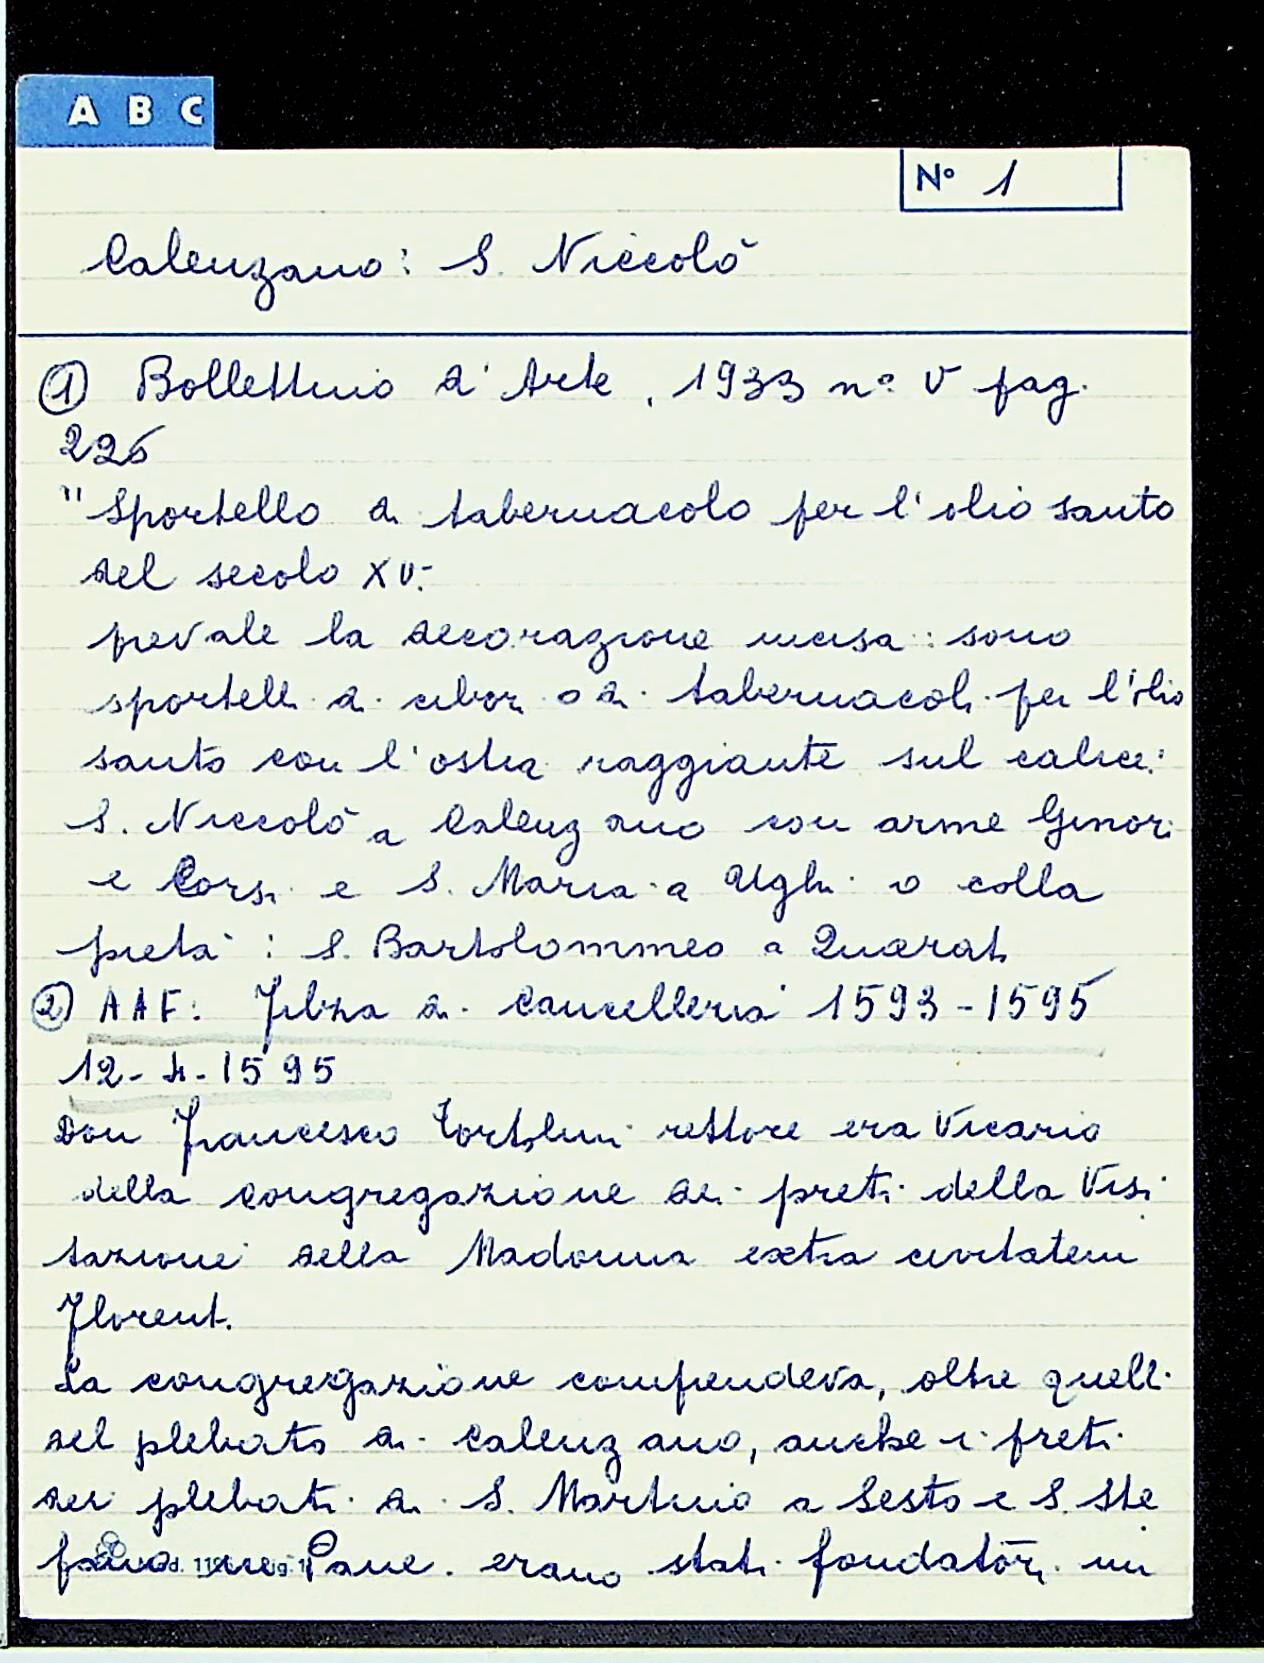 A B C
N° 1
Calenzano: S. Niccolò
① Bollettino d'Arte, 1933 n° V pag.
226
"Sportello di tabernacolo per l'olio santo
del secolo XV:
prevale la decorazione incisa: sono
sportelli di cibori o di tabernacoli per l'olio
santo con l'ostia raggiante sul calice:
S. Niccolò a Calenzano con arme Ginori
e Corsi e S. Maria a Ughi o colla
pietà: S. Bartolommeo a Quarati
② AAF: Filza di Cancelleria 1593-1595
12-4-1595
Don Francesco Tortolini rettore era Vicario
della congregazione dei preti della Visi
tazione della Madonna extra civitatem
Florent.
La congregazione comprendeva, oltre quelli
del plebato di Calenzano, anche i preti
dei plebati di S. Martino a Sesto e S. Ste
fano in Pane. erano stati fondatori un